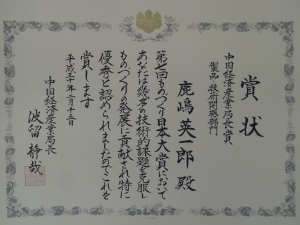 賞状
中国経済産業局長賞
製品・技術開発部門
鹿嶋英一郎殿
第七回ものづくり日本大賞において
あなたは幾多の技術的課題を克服し
ものづくりの発展に貢献され特に
優秀と認められましたのでこれを
賞します
中国経済産業局長
波留静哉